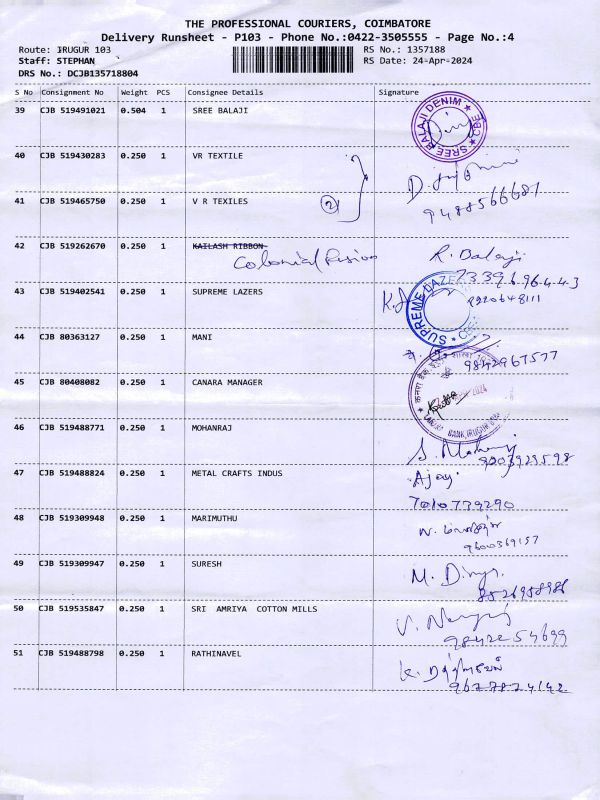 THE PROFESSIONAL COURIERS, COIMBATORE
Delivery Runsheet - P103 - Phone No.:0422-3505555 - Page No.:4
Route: IRUGUR 103 RS No.: 1357188
Staff: STEPHAN RS Date: 24-Apr-2024
DRS No.: DCJB135718804
S No Consignment No Weight PCS Consignee Details Signature
39 CJB 519491021 0.504 1 SREE BALAJI
SREE BALAJI DENIM ★ CBE ★
40 CJB 519430283 0.250 1 VR TEXTILE
41 CJB 519465750 0.250 1 V R TEXTILES
(2)
9488566681
42 CJB 519262670 0.250 1 KAILASH RIBBON
Colonial Fusion R. Balaji
7339696443
43 CJB 519402541 0.250 1 SUPREME LAZERS
SUPREME
44 CJB 80363127 0.250 1 MANI
9842967577
45 CJB 80408082 0.250 1 CANARA MANAGER
2024
BANK, IRUGUR
46 CJB 519488771 0.250 1 MOHANRAJ
47 CJB 519488824 0.250 1 METAL CRAFTS INDUS Ajay
7010739290
48 CJB 519309948 0.250 1 MARIMUTHU
9600369157
49 CJB 519309947 0.250 1 SURESH
8526958986
50 CJB 519535847 0.250 1 SRI AMRIYA COTTON MILLS
9842254699
51 CJB 519488798 0.250 1 RATHINAVEL
9677874142